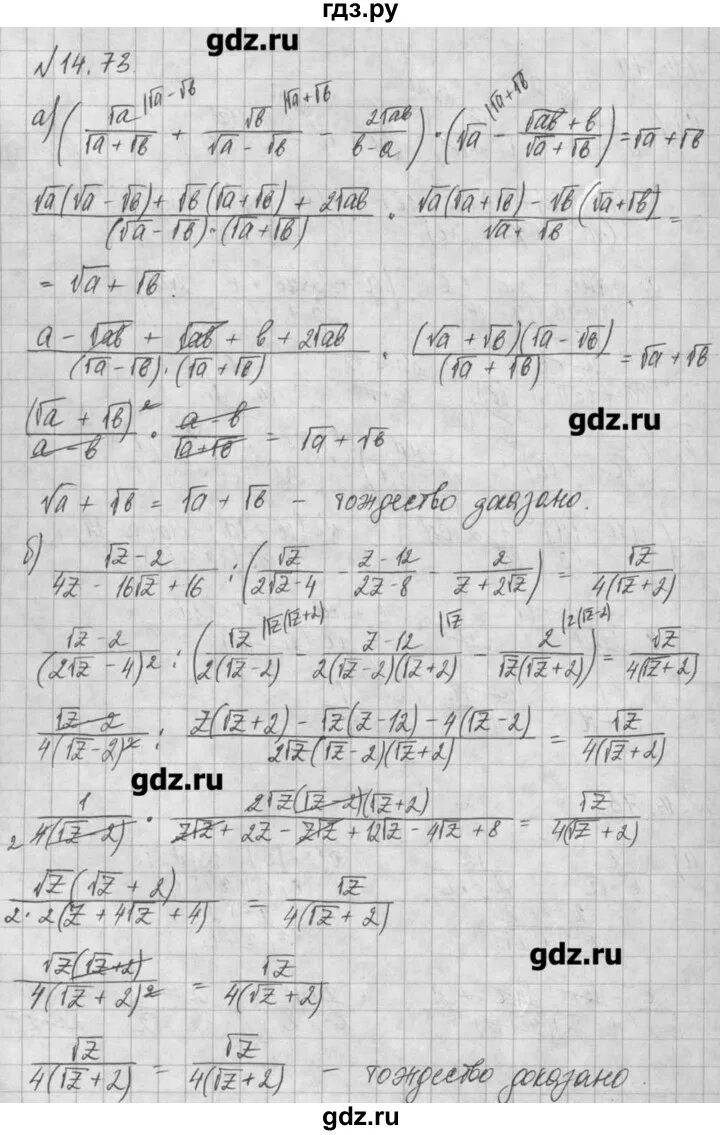 гдз.ру
gdz.ru
№14.73.
а) (√a/(√a+√b) |√a-√b + √b/(√a-√b) |√a+√b - 2√ab/(b-a)) · (√a |√a+√b - (√ab+b)/(√a+√b)) = √a+√b
(√a(√a-√b)+√b(√a+√b)+2√ab)/((√a-√b)·(√a+√b)) · (√a(√a+√b)-√b(√a+√b))/(√a+√b) =
= √a+√b.
(a-√ab+√ab+b+2√ab)/((√a-√b)·(√a+√b)) · ((√a+√b)(√a-√b))/(√a+√b) = √a+√b
gdz.ru
(√a+√b)²/(a-b) · (a-b)/(√a+√b) = √a+√b
√a+√b = √a+√b - тождество доказано.
б) (√z-2)/(4z-16√z+16) : (√z/(2√z-4) - (z-12)/(2z-8) - 2/(z+2√z)) = √z/(4(√z+2))
(√z-2)/(2√z-4)² : (√z/(2(√z-2)) |√z(√z+2) - (z-12)/(2(√z-2)(√z+2)) |√z - 2/(√z(√z+2)) |2(√z-2)) = √z/(4(√z+2))
(√z-2)/(4(√z-2)²) : (z(√z+2)-√z(z-12)-4(√z-2))/(2√z(√z-2)(√z+2)) = √z/(4(√z+2))
gdz.ru
2 1/(4(√z-2)) · (2√z(√z-2)(√z+2))/(z√z+2z-z√z+12√z-4√z+8) = √z/(4(√z+2))
(√z(√z+2))/(2·2(z+4√z+4)) = √z/(4(√z+2))
gdz.ru
(√z(√z+2))/(4(√z+2)²) = √z/(4(√z+2))
√z/(4(√z+2)) = √z/(4(√z+2)) - тождество доказано.
gdz.ru